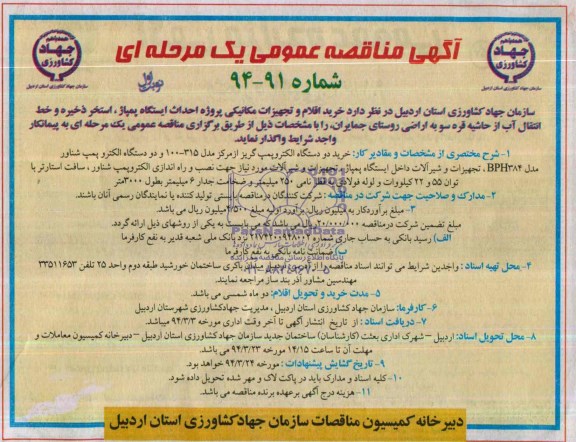 همه با هم
جهاد
کشاورزی
سازمان جهاد کشاورزی استان اردبیل
آگهی مناقصه عمومی یک مرحله ای
شماره ۹۱-۹۴
نوبت اول
همه با هم
جهاد
کشاورزی
سازمان جهاد کشاورزی استان اردبیل
سازمان جهاد کشاورزی استان اردبیل در نظر دارد خرید اقلام و تجهیزات مکانیکی پروژه احداث ایستگاه پمپاژ، استخر ذخیره و خط
انتقال آب از حاشیه قره سو به اراضی روستای جمایران، را با مشخصات ذیل از طریق برگزاری مناقصه عمومی یک مرحله ای به پیمانکار
واجد شرایط واگذار نماید.
۱- شرح مختصری از مشخصات و مقادیر کار: خرید دو دستگاه الکتروپمپ گریز از مرکز مدل ۳۱۵-۱۰۰ و دو دستگاه الکترو پمپ شناور
مدل BPH۳۸۴، تجهیزات و شیرآلات داخل ایستگاه پمپاژ و تجهیزات و شیرآلات مورد نیاز جهت نصب و راه اندازی الکتروپمپ شناور، سافت استارتر با
توان ۵۵ و ۲۲ کیلووات و لوله فولادی با قطر نامی ۲۵۰ میلیمتر و ضخامت جدار ۶ میلیمتر بطول ۳۰۰۰متر
۲- مدارک و صلاحیت جهت شرکت در مناقصه: شرکت کنندگان در مناقصه بایستی تولید کننده یا نمایندگان رسمی آنان باشند.
۳- مبلغ برآورد کار به میلیون ریال: برآورد اولیه مبلغ ۴/۵۰۰ میلیون ریال می باشد.
مبلغ تضمین شرکت در مناقصه ۲۰/۰۰۰/۰۰۰ ریال می باشد که می بایست به یکی از روشهای ذیل ارائه گردد.
الف) رسید بانکی به حساب جاری شماره نزد بانک ملی شعبه غدیر به نفع کارفرما
ب) ضمانت نامه بانکی به نفع کارفرما
ParsNamadData
پایگاه اطلاع رسانی مناقصه و مزایده
۴- محل تهیه اسناد: واجدین شرایط می توانند اسناد مناقصه را از آدرس: اردبیل میدان باکری ساختمان خورشید طبقه دوم واحد ۲۵ تلفن ۳۳۵۱۱۶۵۳
مهندسین مشاور آذر بند ساز مراجعه نمایند.
۵- مدت خرید و تحویل اقلام: دو ماه شمسی می باشد.
۶- کارفرما: سازمان جهاد کشاورزی استان اردبیل، مدیریت جهاد کشاورزی شهرستان اردبیل
۷- دریافت اسناد: از تاریخ انتشار آگهی تا آخر وقت اداری مورخه ۹۴/۳/۳ میباشد.
۸- محل تحویل اسناد: اردبیل – شهرک اداری بعثت (کارشناسان) ساختمان جدید سازمان جهاد کشاورزی استان اردبیل – دبیرخانه کمیسیون معاملات و
مهلت آن تا ساعت ۱۴/۱۵ مورخه ۹۴/۳/۲۳ می باشد.
۹- تاریخ گشایش پیشنهادات: مورخه ۹۴/۳/۲۴ خواهد بود.
۱۰- کلیه اسناد و مدارک باید در پاکت لاک و مهر شده تحویل داده شود.
۱۱- هزینه درج آگهی برعهده برنده مناقصه می باشد.
دبیرخانه کمیسیون مناقصات سازمان جهاد کشاورزی استان اردبیل